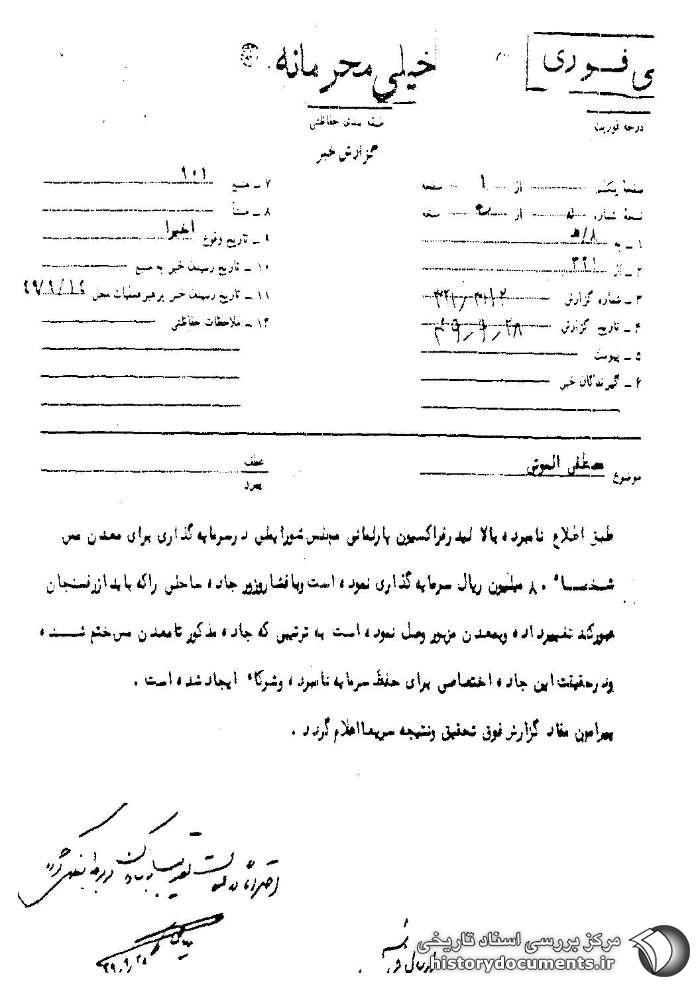 ی فوری
خیلی محرمانه
درجه فوریت
طبقه بندی حفاظتی
گزارش خبر
صفحهٔ یکم از ۱ صفحه
نسخهٔ شماره از نسخه
۱ - به ۸/ه
۲ - از ۳۲۱
۳ - شماره گزارش
۴ - تاریخ گزارش ۴۹٫۹٫۲۸
۵ - پیوست
۶ - گیرندگان خبر
۷ - منبع ۹۰۱
۸ - منشأ
۹ - تاریخ وقوع اخیرا
۱۰ - تاریخ رسیدن خبر به منبع
۱۱ - تاریخ رسیدن خبر برهبر عملیات محل
۱۲ - ملاحظات حفاظتی
موضوع مصطفی الموتی
عطف
پیرو
طبق اطلاع نامبرده بالا لیدر فراکسیون پارلمانی مجلس شورایملی درسرمایه گذاری برای معدن مس
شخصا" ۸۰ میلیون ریال سرمایه گذاری نموده است وبافشاروزور جاده ساحلی راکه باید ازرفسنجان
عبورکند تغییرداده وبمعدن مزبور وصل نموده است به ترتیبی که جاده مذکور تامعدن مس ختم شده
ودرحقیقت این جاده اختصاصی برای حفظ سرمایه نامبرده وشرکاء ایجاد شده است .
پیرامون مفاد گزارش فوق تحقیق ونتیجه سریعا اعلام گردد .
مرکز بررسی اسناد تاریخی
historydocuments.ir